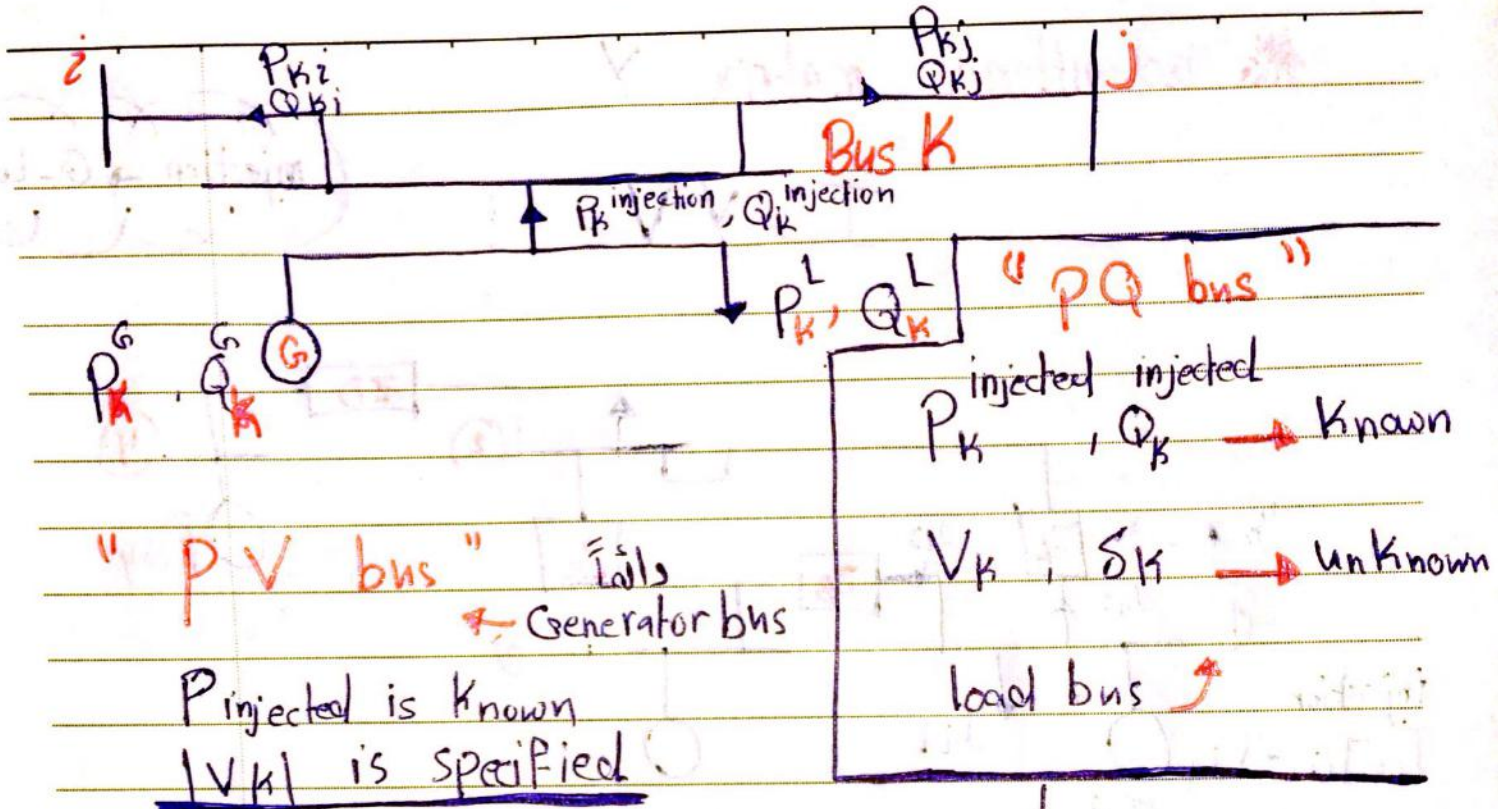 i
Pki
Qki
Pkj
Qkj
j
Bus K
Pk injection , Qk injection
Pk G , Qk G
G
Pk L , Qk L
"PQ bus"
Pk injected , Qk injected → Known
Vk , δk → unKnown
load bus
"PV bus" دائماً
← Generator bus
P injected is Known
|Vk| is specified.